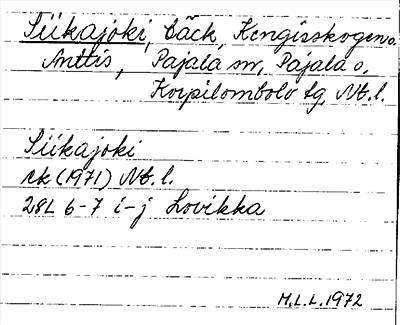 Siikajoki, bäck, Kengisskogen o.
Anttis, Pajala sn, Pajala o.
Korpilombolo tg, Nb.l.
Siikajoki
ek (1971) Nb.l.
28L 6-7 i-j Lovikka
M.L.L. 1972